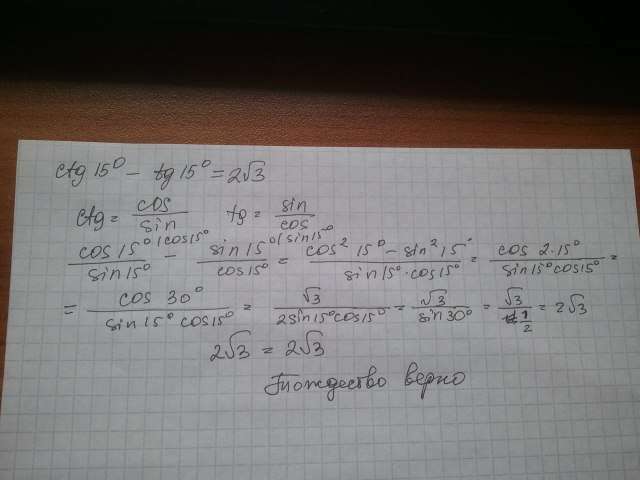 ctg 15° - tg 15° = 2√3
ctg = cos/sin tg = sin/cos
cos 15° |cos15°/sin 15° - sin 15° |sin15°/cos 15° = cos² 15° - sin² 15°/sin 15° · cos 15° = cos 2·15°/sin 15° cos 15° =
= cos 30°/sin 15° cos 15° = √3/2 sin 15° cos 15° = √3/sin 30° = √3/1/2 = 2√3
2√3 = 2√3
Тождество верно